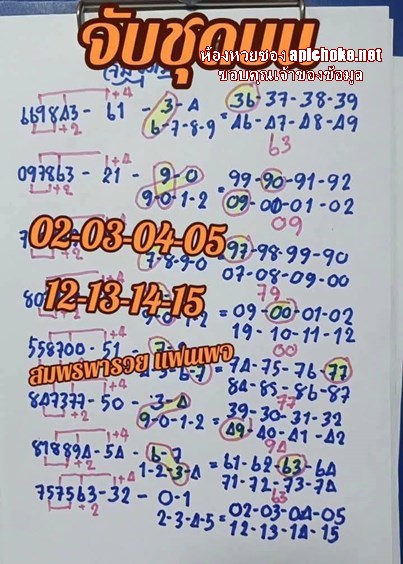 จับชุดบน
ห้องหวยซอง apichoke.net
ขอบคุณเจ้าของข้อมูล
+4
669843 - 61 - 3-4 = 36-37-38-39
+2
6-7-8-9 = 46-47-48-49
63
+4
097863 - 21 - 9-0 = 99-90-91-92
+2
9-0-1-2 = 09-00-01-02
09
02-03-04-05
97-98-99-90
7-8-9-0
07-08-09-00
79
12-13-14-15
80
= 09-00-01-02
19-10-11-12
00
+4
558700 - 51
สมพรพารวย แฟนเพจ
= 74-75-76-77
84-85-86-87
77
+4
847377 - 50 - 3-4 = 39-30-31-32
+2
9-0-1-2 = 49-40-41-42
94
+4
818894 - 54 - 6-7 = 61-62-63-64
+2
1-2-3-4 = 71-72-73-74
63
+4
757563 - 32 - 0-1 = 02-03-04-05
+2
2-3-4-5 = 12-13-14-15